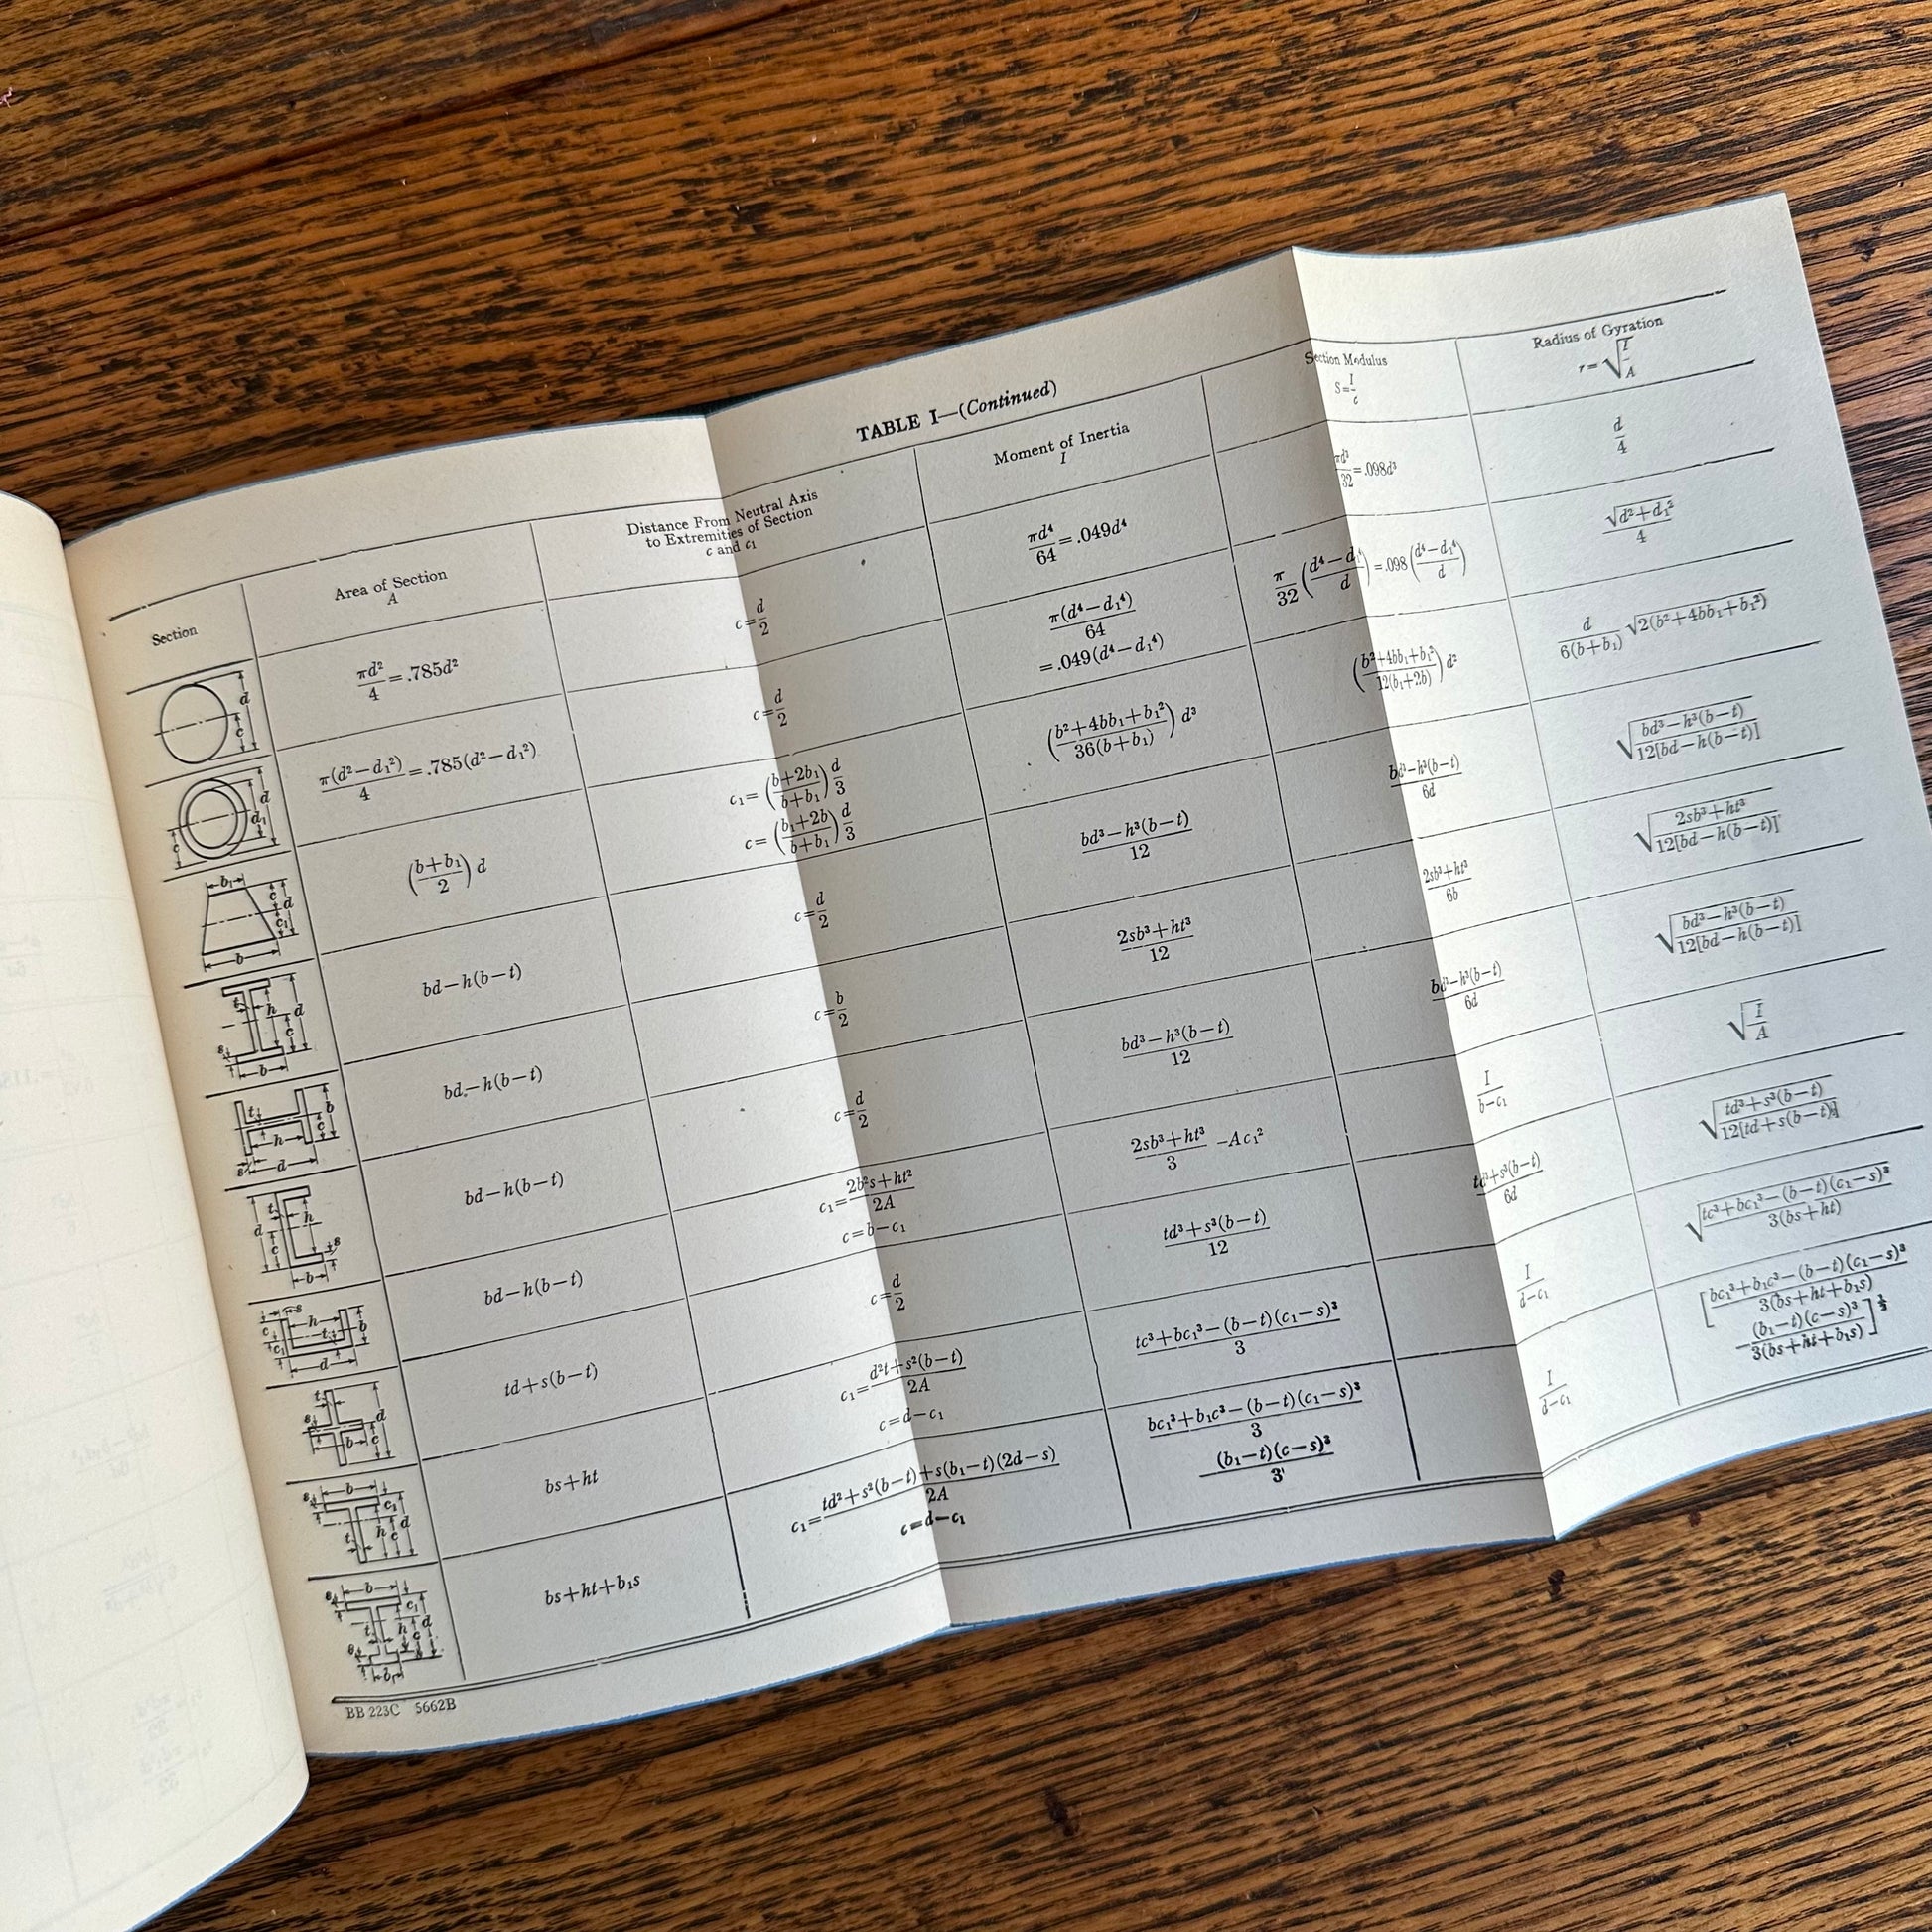 TABLE I—(Continued)
Section
Area of Section
A
Distance From Neutral Axis
to Extremities of Section
c and c₁
Moment of Inertia
I
Section Modulus
S=I/c
Radius of Gyration
r=√(I/A)
d
c
πd²/4=.785d²
c=d/2
πd⁴/64=.049d⁴
πd³/32=.098d³
d/4
d
d₁
c
π(d²−d₁²)/4=.785(d²−d₁²)
c=d/2
π(d⁴−d₁⁴)/64
=.049(d⁴−d₁⁴)
π/32((d⁴−d₁⁴)/d)=.098((d⁴−d₁⁴)/d)
√(d²+d₁²)/4
b₁
c
d
c₁
b
((b+b₁)/2)d
c₁=((b+2b₁)/(b+b₁))d/3
c=((b₁+2b)/(b+b₁))d/3
((b²+4bb₁+b₁²)/36(b+b₁))d³
((b²+4bb₁+b₁²)/12(b₁+2b))d²
d/6(b+b₁)√2(b²+4bb₁+b₁²)
t
h
d
c
s
b
bd−h(b−t)
c=d/2
(bd³−h³(b−t))/12
(bd³−h³(b−t))/6d
√((bd³−h³(b−t))/12[bd−h(b−t)])
t
b
c
h
s
d
bd−h(b−t)
c=b/2
(2sb³+ht³)/12
(2sb³+ht³)/6b
√((2sb³+ht³)/12[bd−h(b−t)])
t
h
d
c
s
b
bd−h(b−t)
c=d/2
(bd³−h³(b−t))/12
(bd³−h³(b−t))/6d
√((bd³−h³(b−t))/12[bd−h(b−t)])
s
h
c
t
b
c₁
d
bd−h(b−t)
c₁=(2b²s+ht²)/2A
c=b−c₁
(2sb³+ht³)/3 −Ac₁²
I/(b−c₁)
√(I/A)
t
s
d
b
c
td+s(b−t)
c=d/2
(td³+s³(b−t))/12
(td³+s³(b−t))/6d
√((td³+s³(b−t))/12[td+s(b−t)])
s
b
c₁
h
c
d
t
bs+ht
c₁=(d²t+s²(b−t))/2A
c=d−c₁
(tc³+bc₁³−(b−t)(c₁−s)³)/3
I/(d−c₁)
√((tc³+bc₁³−(b−t)(c₁−s)³)/3(bs+ht))
s
b
c₁
t
h
c
d
s
b₁
bs+ht+b₁s
c₁=(td²+s²(b−t)+s(b₁−t)(2d−s))/2A
c=d−c₁
(bc₁³+b₁c³−(b−t)(c₁−s)³)/3
(b₁−t)(c−s)³/3
I/(d−c₁)
[(bc₁³+b₁c³−(b−t)(c₁−s)³)/3(bs+ht+b₁s)
−(b₁−t)(c−s)³/3(bs+ht+b₁s)]^½
BB 223C 5662B